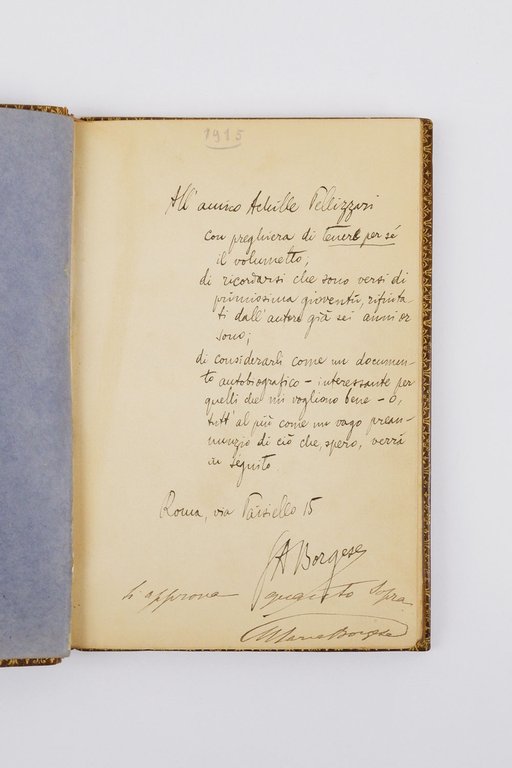 1915
All'amico Achille Pellizzari
con preghiera di tenere per sé
il volumetto;
di ricordarsi che sono versi di
primissima gioventù, rifiuta-
ti dall'autore già sei anni or
sono;
di considerarli come un documen-
to autobiografico – interessante per
quelli che mi vogliono bene – o,
tutt'al più come un vago prean-
nunzio di ciò che, spero, verrà
in seguito.
Roma, via Paisiello 15
GA Borgese
Si approva quanto sopra
Maria Borgese